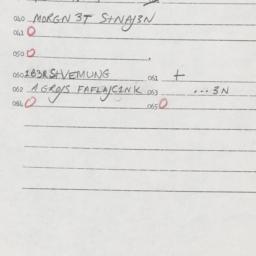 040 MORGN 3T S+NAJ3N
041 O
050 O
060 1B3R S+VEMUNG 061 +
062 AGROJS FAFLAJC1NK 063 ...3N
064 O 065 O